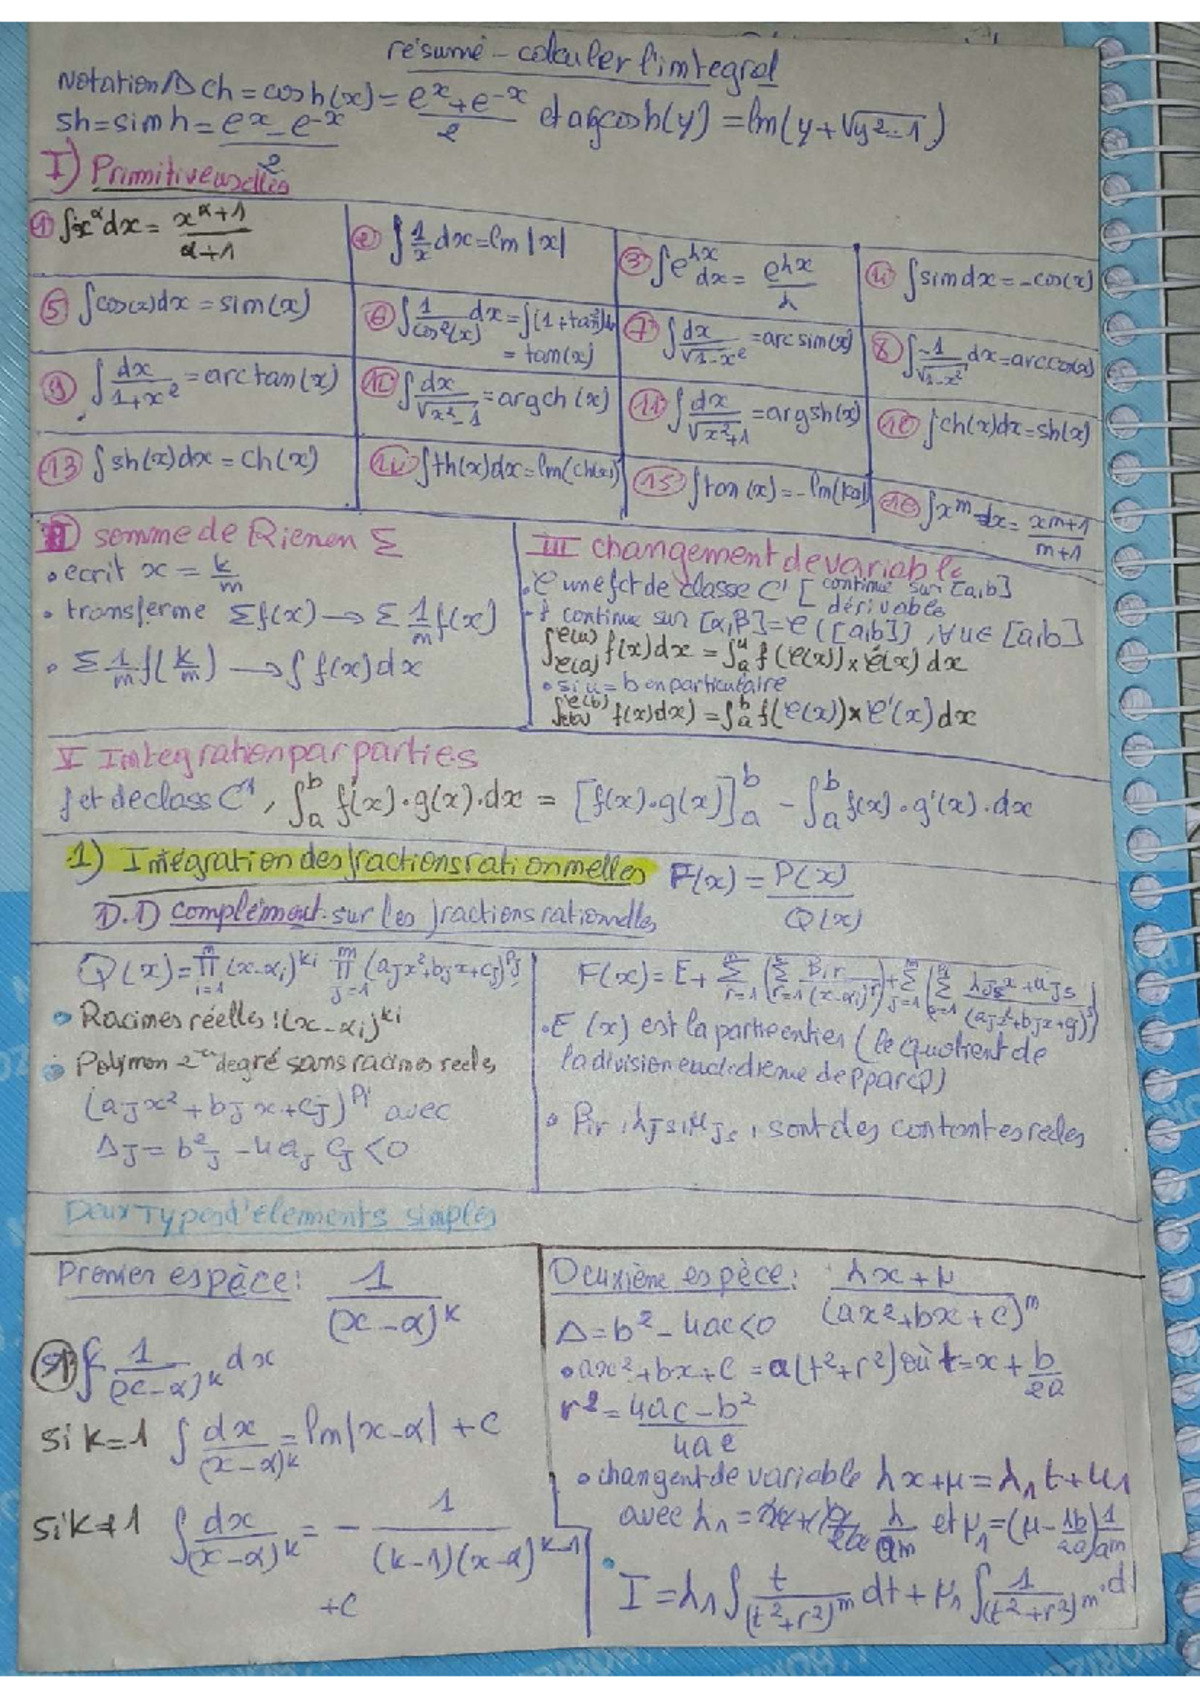 résumé - calculer l'integral
Notation/Δ ch = cosh(x) = (e^x + e^-x)/2 et argcosh(y) = ln(y + √(y²-1))
sh = sinh = (e^x - e^-x)/2
I) Primitive usuelles
① ∫x^α dx = x^(α+1)/(α+1)
② ∫ 1/x dx = ln|x|
③ ∫e^(λx) dx = e^(λx)/λ
④ ∫sin dx = -cos(x)
⑤ ∫cos(x)dx = sin(x)
⑥ ∫ 1/cos²(x) dx = ∫(1+tan²)
= tan(x)
⑦ ∫ dx/√(1-x²) = arcsin(x)
⑧ ∫ -1/√(1-x²) dx = arccos(x)
⑨ ∫ dx/(1+x²) = arctan(x)
⑩ ∫ dx/√(x²-1) = argch(x)
⑪ ∫ dx/√(x²+1) = argsh(x)
∫ch(x)dx = sh(x)
⑬ ∫sh(x)dx = ch(x)
⑭ ∫th(x)dx = ln(ch(x))
⑮ ∫tan(x) = -ln
⑯ ∫x^n dx = x^(n+1)/(n+1)
II) somme de Riemen Σ
• ecrit x = k/n
• transferme Σf(x) → Σ 1/n f(x)
• Σ 1/n f(k/n) → ∫ f(x)dx
III changement de variable
• φ une fct de classe C¹ [ continue sur [a,b]
dérivable
- f continue sur [α,β] = φ([a,b]), ∀u∈[a,b]
∫_φ(a)^φ(u) f(x)dx = ∫_a^u f(φ(x)) × φ'(x) dx
• si u = b en particulaire
∫_φ(a)^φ(b) f(x)dx) = ∫_a^b f(φ(x)) × φ'(x) dx
V Integration par parties
f et de class C¹, ∫_a^b f'(x)·g(x)·dx = [f(x)·g(x)]_a^b - ∫_a^b f(x)·g'(x)·dx
1) Intégration des fractions rationnelles F(x) = P(x)/Q(x)
1.1) complément sur les fractions rationelles
Q(x) = ∏_(i=1)^n (x-αi)^ki ∏_(j=1)^m (ajx²+bjx+cj)^Pj
• Racines réelles : (x-αi)^ki
• Polymon 2 degré sans racines reels
(ajx² + bjx + cj)^Pj avec
Δj = b²j - 4aj cj < 0
F(x) = E + Σ (Σ βir/(x-αi)^r) + Σ_(j=1)^m (Σ (λjs x + μjs)/(ajx²+bjx+cj)^s)
• E(x) est la partie enties (le quotient de
la division euclidienne de P par Q)
• βir, λjs, μjs, sont des contantes reeles
Deux Types d'élements simples
Premier espèce : 1/(x-α)^k
∫ 1/(x-α)^k dx
si k=1 ∫ dx/(x-α)^k = ln|x-α| + c
si k≠1 ∫ dx/(x-α)^k = - 1/((k-1)(x-α)^(k-1))
+c
Deuxième espèce : (λx+μ)/(ax²+bx+c)^n
Δ = b² - 4ac < 0
• ax²+bx+c = a(t²+r²) où t = x + b/2a
r² = (4ac-b²)/4a²
• changent de variable λx+μ = λ₁t+μ₁
avec λ₁ = λ/a^n et μ₁ = (μ - λb/2a) 1/a^n
• I = λ₁ ∫ t/(t²+r²)^n dt + μ₁ ∫ 1/(t²+r²)^n · d